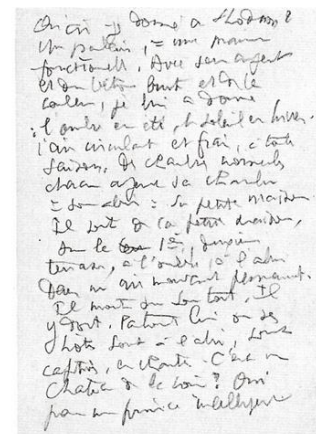 Qu'ai-je donné à Shodhan ?
Un palais, = une maison
fonctionnelle. Avec son argent
et du béton brut et de la
couleur, je lui ai donné
: l'ombre en été, le soleil en hiver.
l'air circulant et frais, à toute
saison. De chambres normales
chacun ayant sa chambre
= son abri = sa petite maison.
Il sort de sa petite maison,
sur la 1ère, deuxième
terrasse, à l'ombre, à l'abri
dans un air mouvant permanent.
Il monte sur son toit, Il
y dort. Partout lui ou ses
hôtes sont à l'abri, sont
captivés, enchantés. C'est un
Château de la Loire ? Oui
pour un prince intelligent